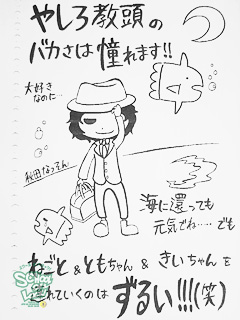 やしろ教頭の
バカさは憧れます!!
大好き
なのに…
秋田なってん
海に還っても
元気でね……でも
ねごと&ともちゃん&きいちゃんを
連れていくのは ずるい!!!(笑)